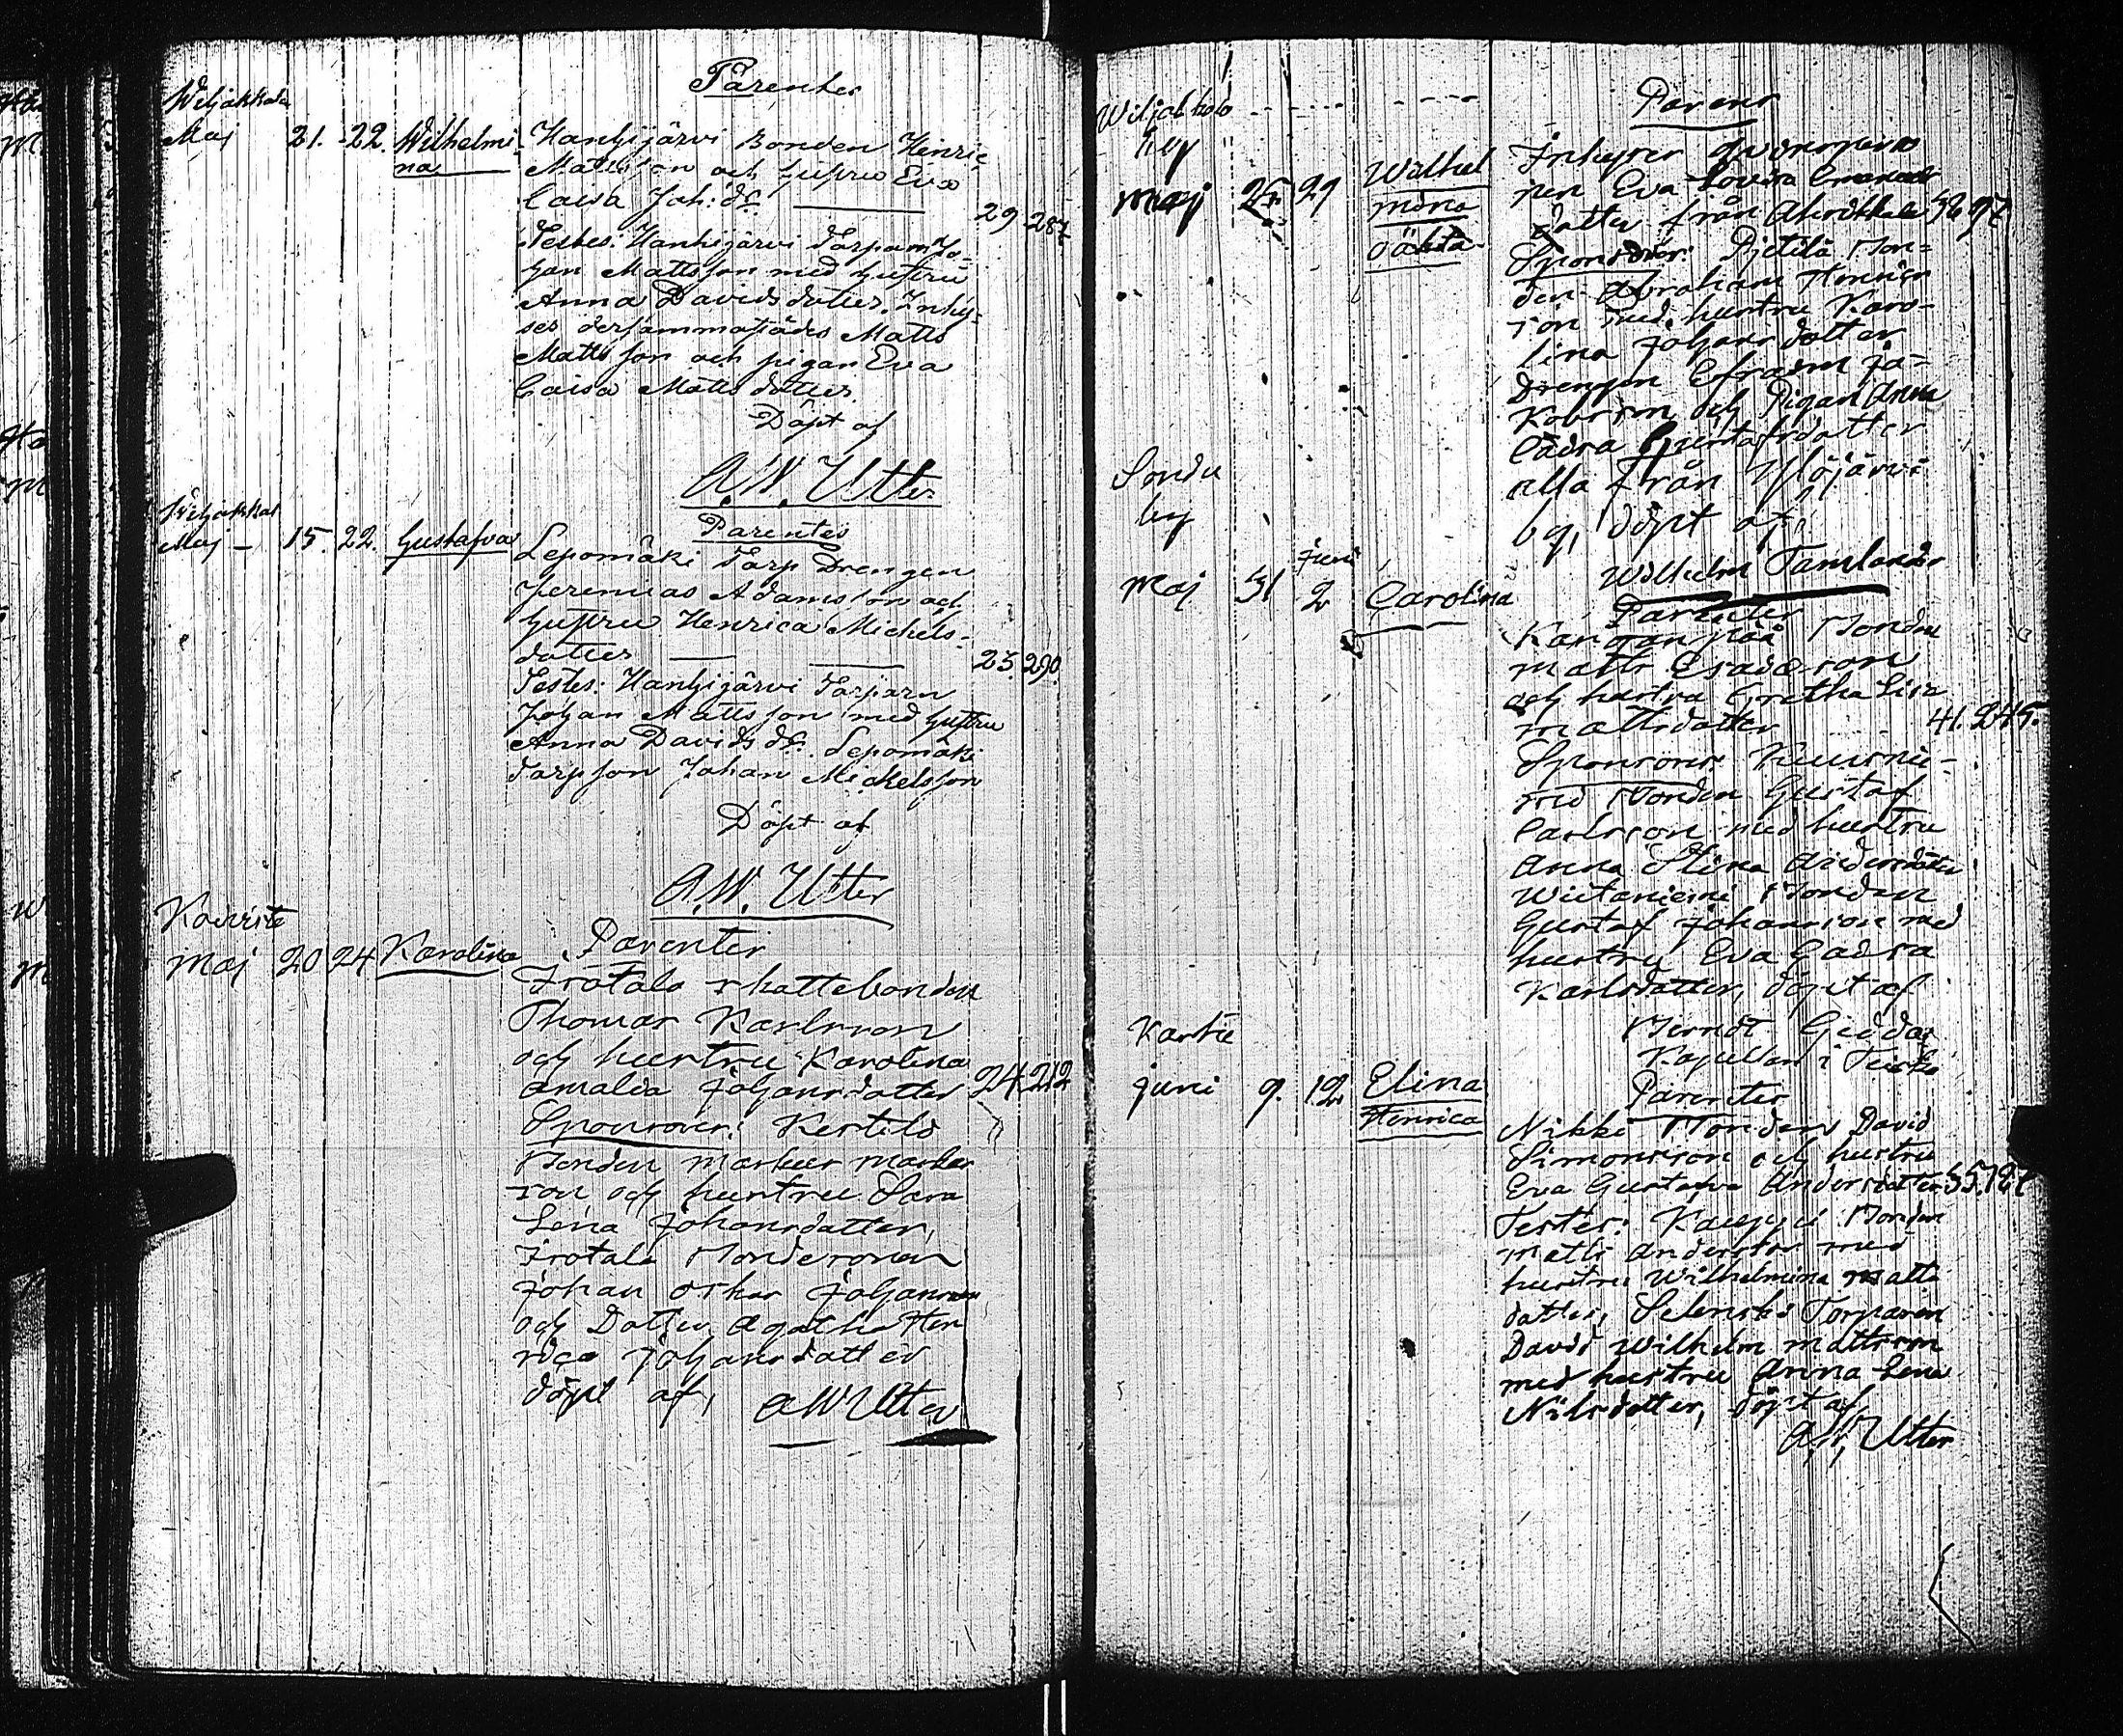 Parentes
Wiljakkala
Maj 21. 22. Wilhelmi-
na
Hanhijärvi Bonden Henric
Mattsson och hustru Eva
Caisa Joh:dr 29 287
Testes: Hanhijärvi Torparn Jo-
han Mattsson med hustru
Anna Davidsdotter. Inhy-
ses dersammastädes Matts
Mattsson och pigan Eva
Caisa Mattsdotter
Döpt af
A.W. Utter
Parentes
Wiljakkal
Maj 15. 22. Gustafva
Lepomäki Torp Drengen
Jeremias Adamsson och
hustru Henrica Michels-
dotter 23. 290.
Testes: Hanhijärvi Torparn
Johan Mattsson med hustru
Anna Davids dr. Lepomäki
Torpson Johan Mickelsson
Döpt af
A.W. Utter
Parentes
Maj 20 24 Karolina
skattebonden
Thomas Karlsson
och hustru Karolina
Amalia Johansdotter 24 212
Sponsorer: Kertilö
Bonden Markus
son och hustru Sara
Lena Johansdotter,
Bondesonen
Johan Oskar Johansson
och Dotter Agatha Hen
rica Johansdotter
döpt af, AW Utter
Wiljakkala
by
Maj 29
Wilhel
mina
oäkta
Parens
Inhyses
pen Eva Lovisa
dotter från
Sponsorer: Pietilä Bon=
den Abraham Henrics
son med hustru Karo-
lina Johansdotter
Drengen Efraim Ja-
kobsson och Pigan Anna
Cajsa Gustafsdotter
alla från Ylöjärvi
by, döpt af,
Wilhelm
Sondu
by
Juni
Maj 31 2 Carolina
Parentes
Bonden
Matts Esaiæson
och hustru Gretha Lisa
Mattsdotter 41. 245.
Sponsorer
Bonden Gustaf
Carlsson med hustru
Anna Stina Andersdotter
Wiitaniemi Bonden
Gustaf Johansson med
hustru Eva Cajsa
Karlsdotter, döpt af
Berndt
Kapellan i
Juni 9. 12 Elina
Henrica
Parentes
Nikki Bonden David
Simonsson och hustru
Eva Gustafva Andersdotter
Testes: Kauppi Bonden
Matts Andersson med
hustru Wilhelmina Matts
dotter, Torparen
David Wilhelm Mattsson
med hustru Anna Lena
Nilsdotter, döpt af
A.W. Utter